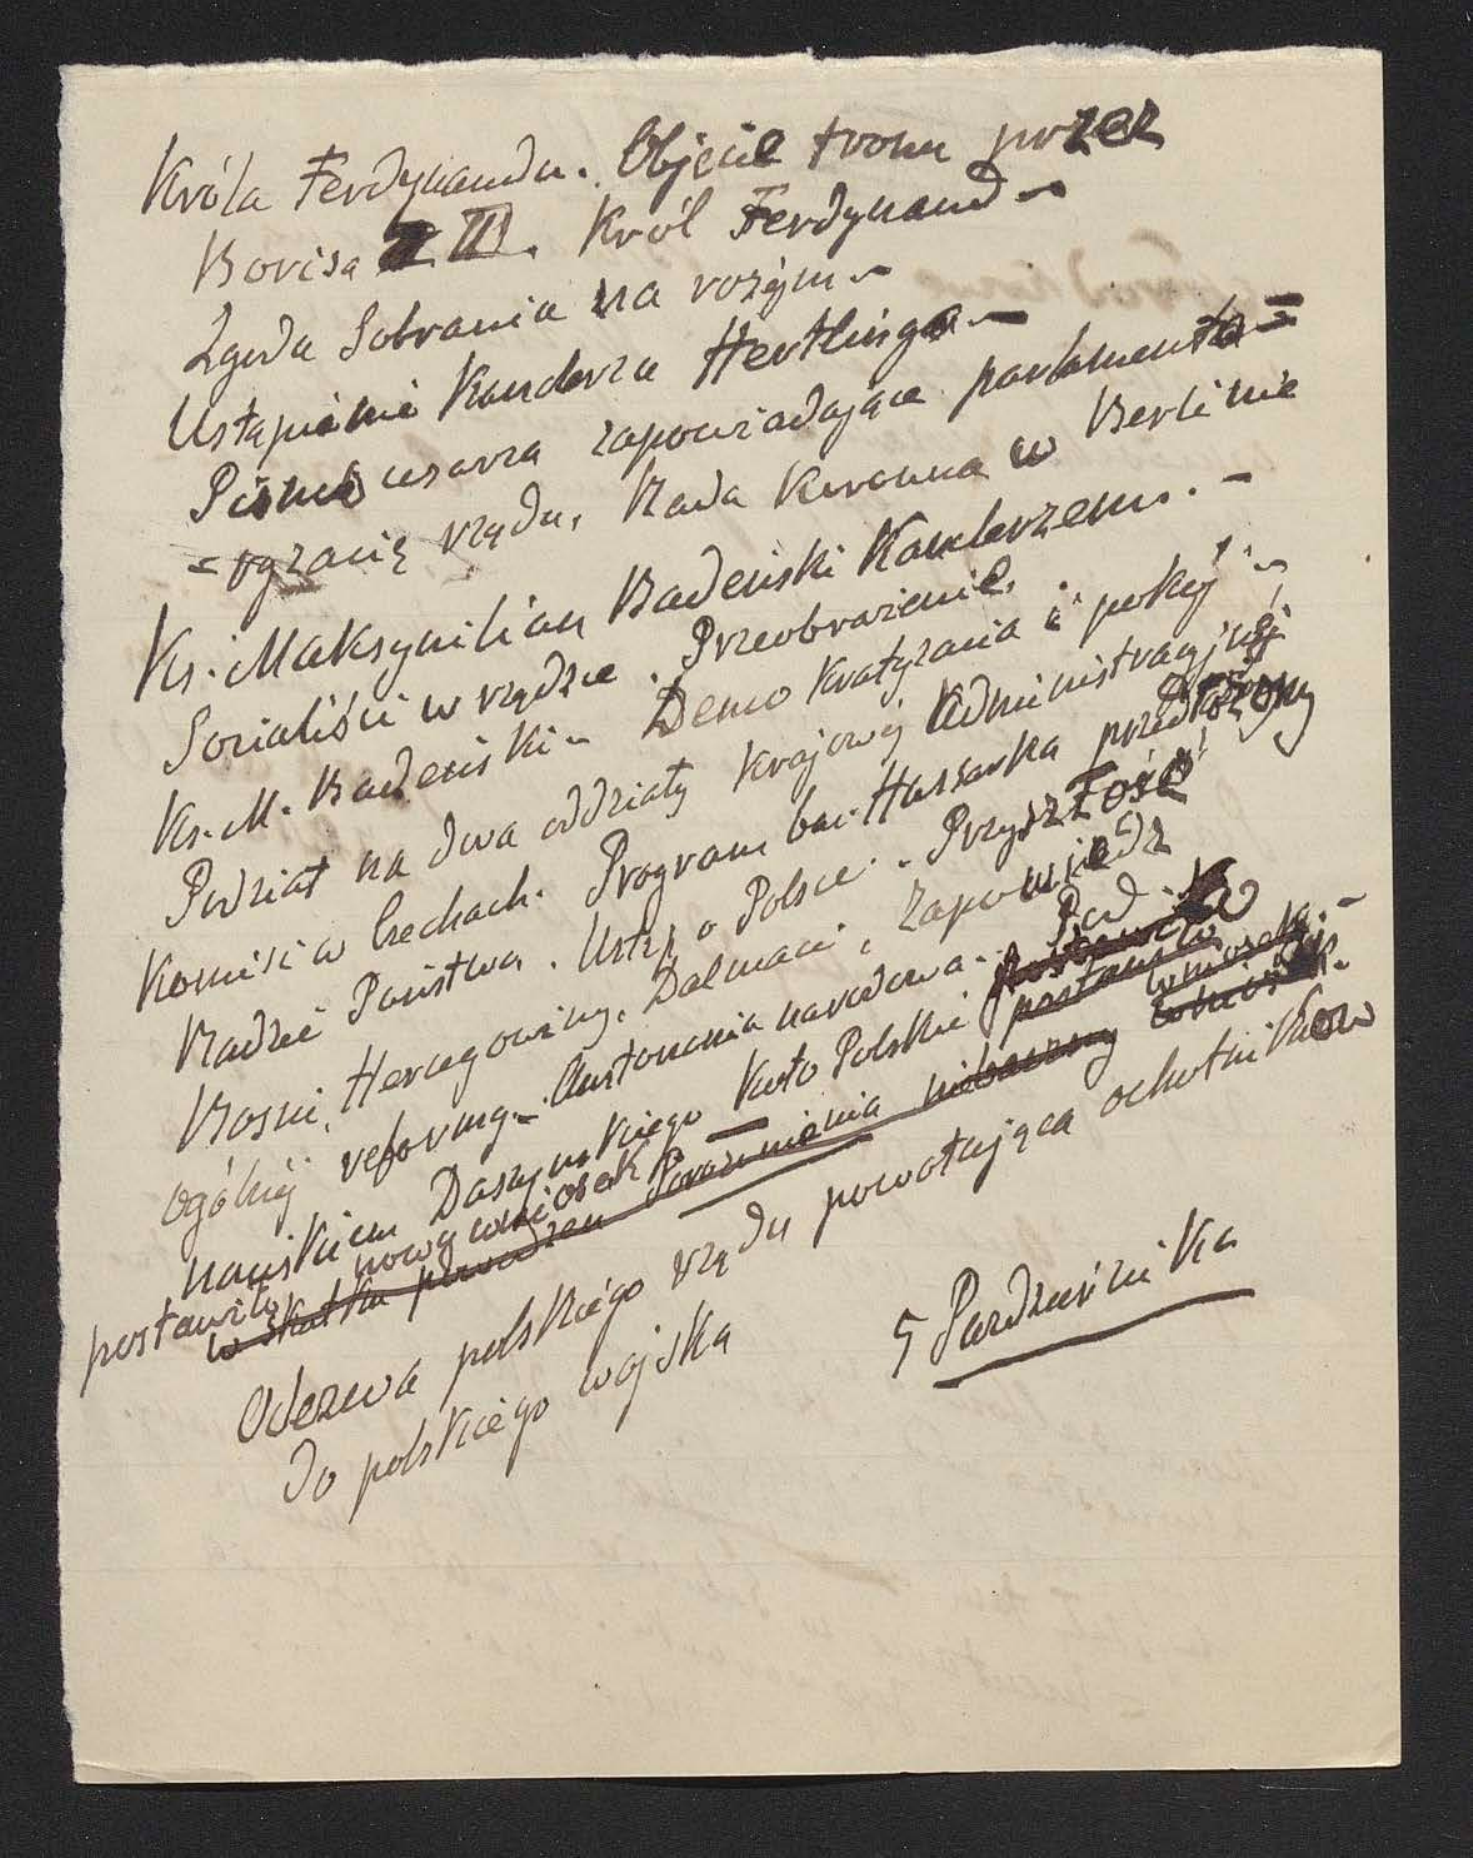 Króla Ferdynanda. Objęcie tronu przez
Borisa III. Król Ferdynand –
Zgoda Sobrania na rozejm –
Ustąpienie Kanclerza Hertlinga –
Pismo cesarza zapowiadające parlamenta=
=ryzacię rządu, Rada Koronna w Berlinie
Ks. Maksymilian Badeński Kanclerzem. –
Socialiści w rządzie. Przeobrażenie.
Ks. M. Badeński – Demokratyzacia i pokój –
Podział na dwa oddziały krajowej Administracyjnej
Komisi w Czechach. Program bar. Hussarka przedłożony
Radzie Państwa. Ustęp o Polsce. Przyszłość
Bosni, Hercegowiny, Dalmaci, Zapowiedź
ogólnej reformy – Autonomia narodowa. Pod
naciskiem Daszyńskiego Koło Polskie postawiło wniosek. –
postawiło nowy wniosek
w skutku porozumienia
Odezwa polskiego rządu powołująca ochotników
do polskiego wojska
5 Października